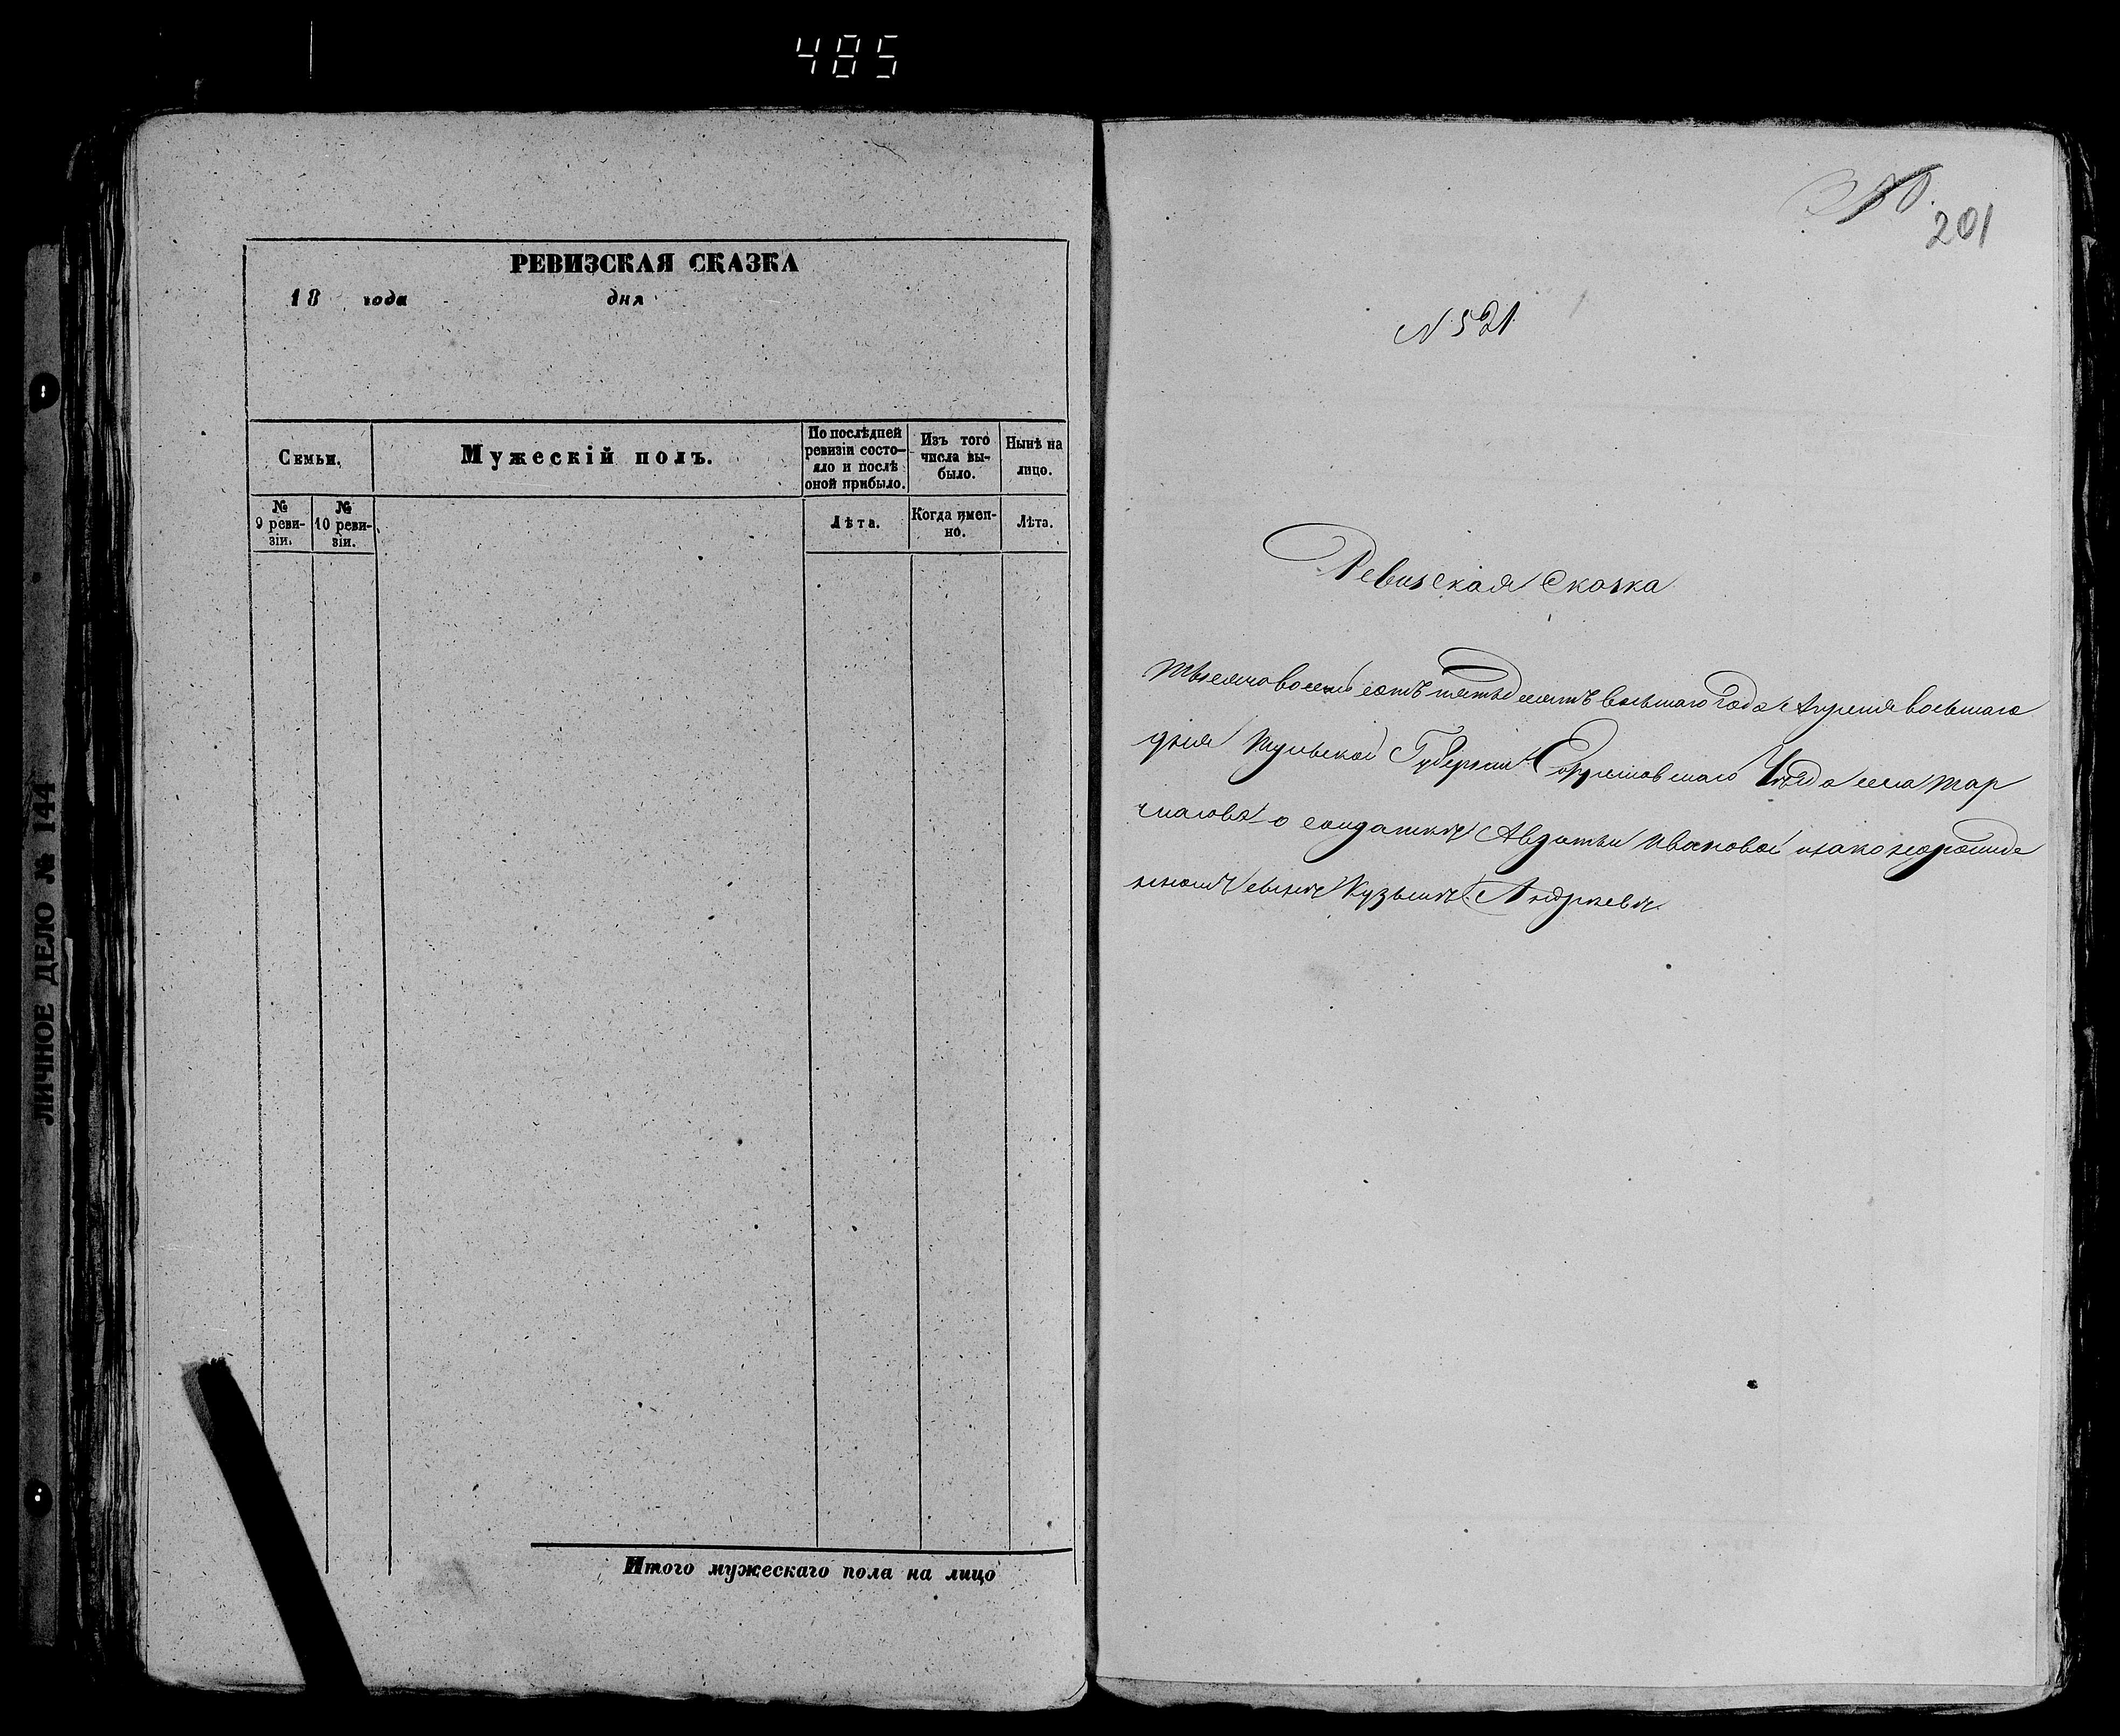 485
ЛИЧНОЕ ДЕЛО № 144
РЕВИЗСКАЯ СКАЗКА
18 года дня
Семьи.
Мужескій полъ.
По послѣдней ревизіи состо-
яло и послѣ
оной прибыло.
Изъ того
числа вы-
было.
Нынѣ на
лицо.
№
9 реви-
зіи.
№
10 реви-
зіи.
Лѣта.
Когда имен-
но.
Лѣта.
Итого мужескаго пола на лицо
201
N 521.
Ревизская Сказка
тысяча восемь сотъ пятьдесятъ восьмаго Года Апреля восьмаго
дня Тульской Губернии Уѣзда села
о солдатки Авдотьи Ивановой
сынѣ Кузьмѣ Андреевѣ